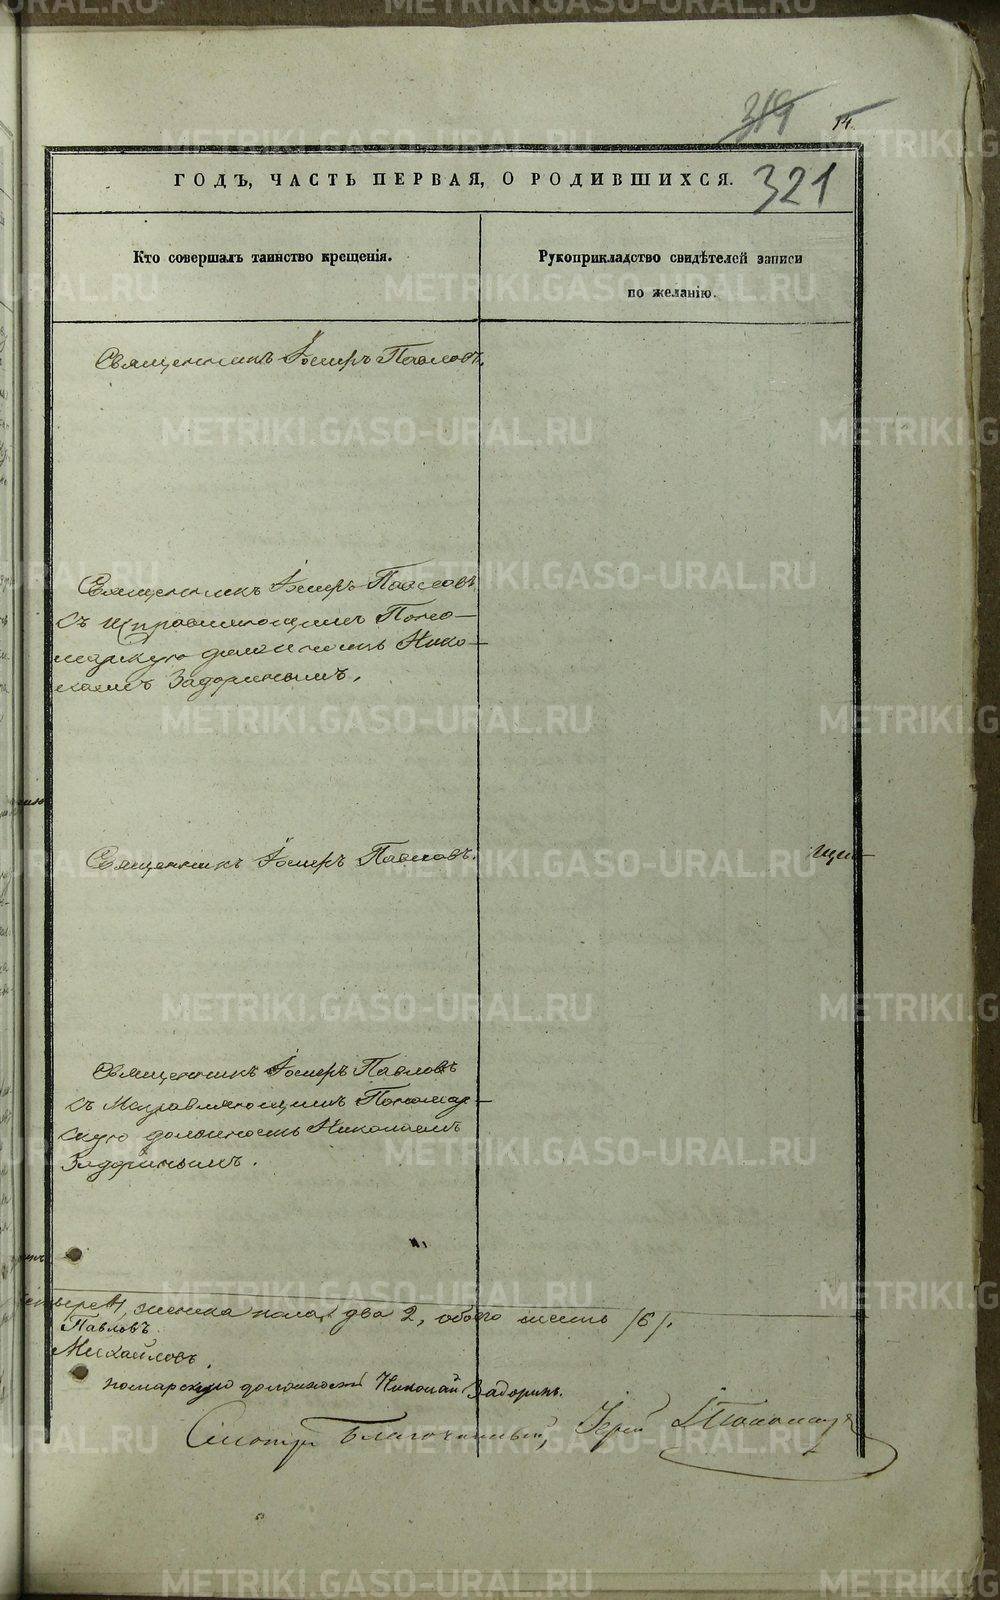 319 14.
ГОДЪ, ЧАСТЬ ПЕРВАЯ, О РОДИВШИХСЯ. 321
Кто совершалъ таинство крещенія.
Рукоприкладство свидѣтелей записи
по желанію.
Священникъ Павловъ.
Священникъ Павловъ
съ исправляющимъ Поно-
марскую должность Нико-
лаемъ Задоринымъ.
Священникъ Павловъ.
Священникъ Павловъ
съ Исправляющимъ Пономар-
скую должность Николаемъ
Задоринымъ.
женска пола два 2, обоего шесть /6/.
Павловъ.
Михайловъ.
номарскую должность Николай Задоринъ.
Смотрѣлъ Благочинный, Іерей
METRIKI.GASO-URAL.RU